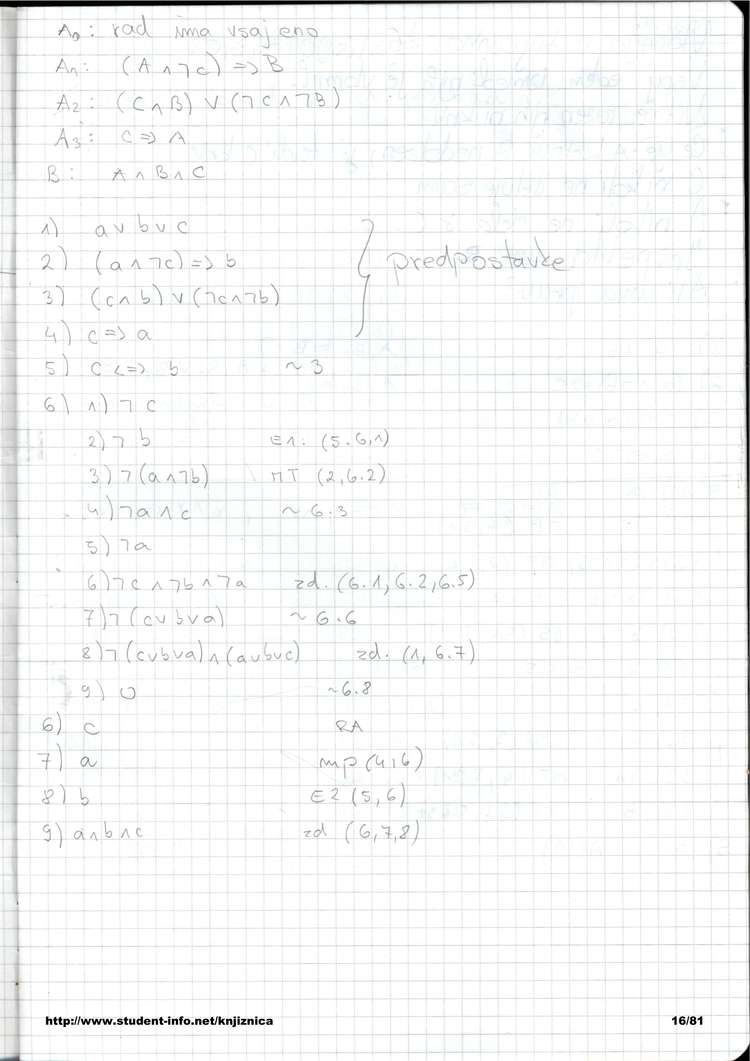 A₀: rad ima vsaj eno
A₁: (A ∧ ¬C) => B
A₂: (C ∧ B) ∨ (¬C ∧ ¬B)
A₃: C => A
B: A ∧ B ∧ C
1) a ∨ b ∨ c
2) (a ∧ ¬c) => b
3) (c ∧ b) ∨ (¬c ∧ ¬b)
predpostavke
4) c => a
5) c <=> b ~ 3
6) 1) ¬ c
2) ¬ b E1. (5.6,1)
3) ¬(a ∧ ¬b) MT (2,6.2)
4) ¬a ∧ c ~ 6.3
5) ¬a
6) ¬c ∧ ¬b ∧ ¬a zd. (6.1, 6.2, 6.5)
7) ¬(c ∨ b ∨ a) ~ 6.6
8) ¬(c ∨ b ∨ a) ∧ (a ∨ b ∨ c) zd. (1, 6.7)
9) 0 ~6.8
6) c RA
7) a mp (4,6)
8) b E2 (5,6)
9) a ∧ b ∧ c zd (6,7,8)
http://www.student-info.net/knjiznica 16/81